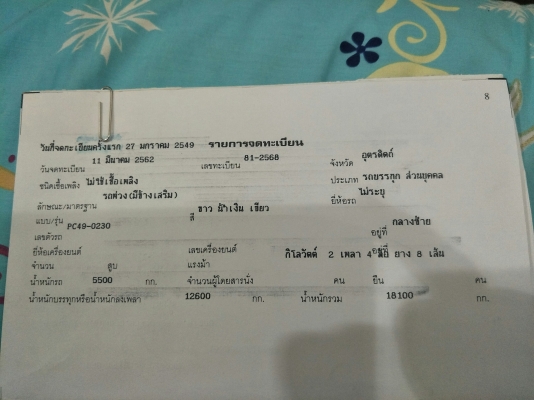 8
วันที่จดทะเบียนครั้งแรก 27 มกราคม 2549 รายการจดทะเบียน
วันจดทะเบียน 11 มีนาคม 2562 เลขทะเบียน 81-2568 จังหวัด อุตรดิตถ์
ชนิดเชื้อเพลิง ไม่ใช้เชื้อเพลิง ประเภท รถบรรทุก ส่วนบุคคล
ลักษณะ/มาตรฐาน รถพ่วง(มีข้างเสริม) ยี่ห้อรถ ไม่ระบุ
แบบ/รุ่น สี ขาว น้ำเงิน เขียว
เลขตัวรถ PC49-0230 อยู่ที่ กลางซ้าย
ยี่ห้อเครื่องยนต์ เลขเครื่องยนต์ อยู่ที่
จำนวน สูบ แรงม้า กิโลวัตต์ 2 เพลา 4 ล้อ ยาง 8 เส้น
น้ำหนักรถ 5500 กก. จำนวนผู้โดยสารนั่ง คน ยืน คน
น้ำหนักบรรทุกหรือน้ำหนักลงเพลา 12600 กก. น้ำหนักรวม 18100 กก.